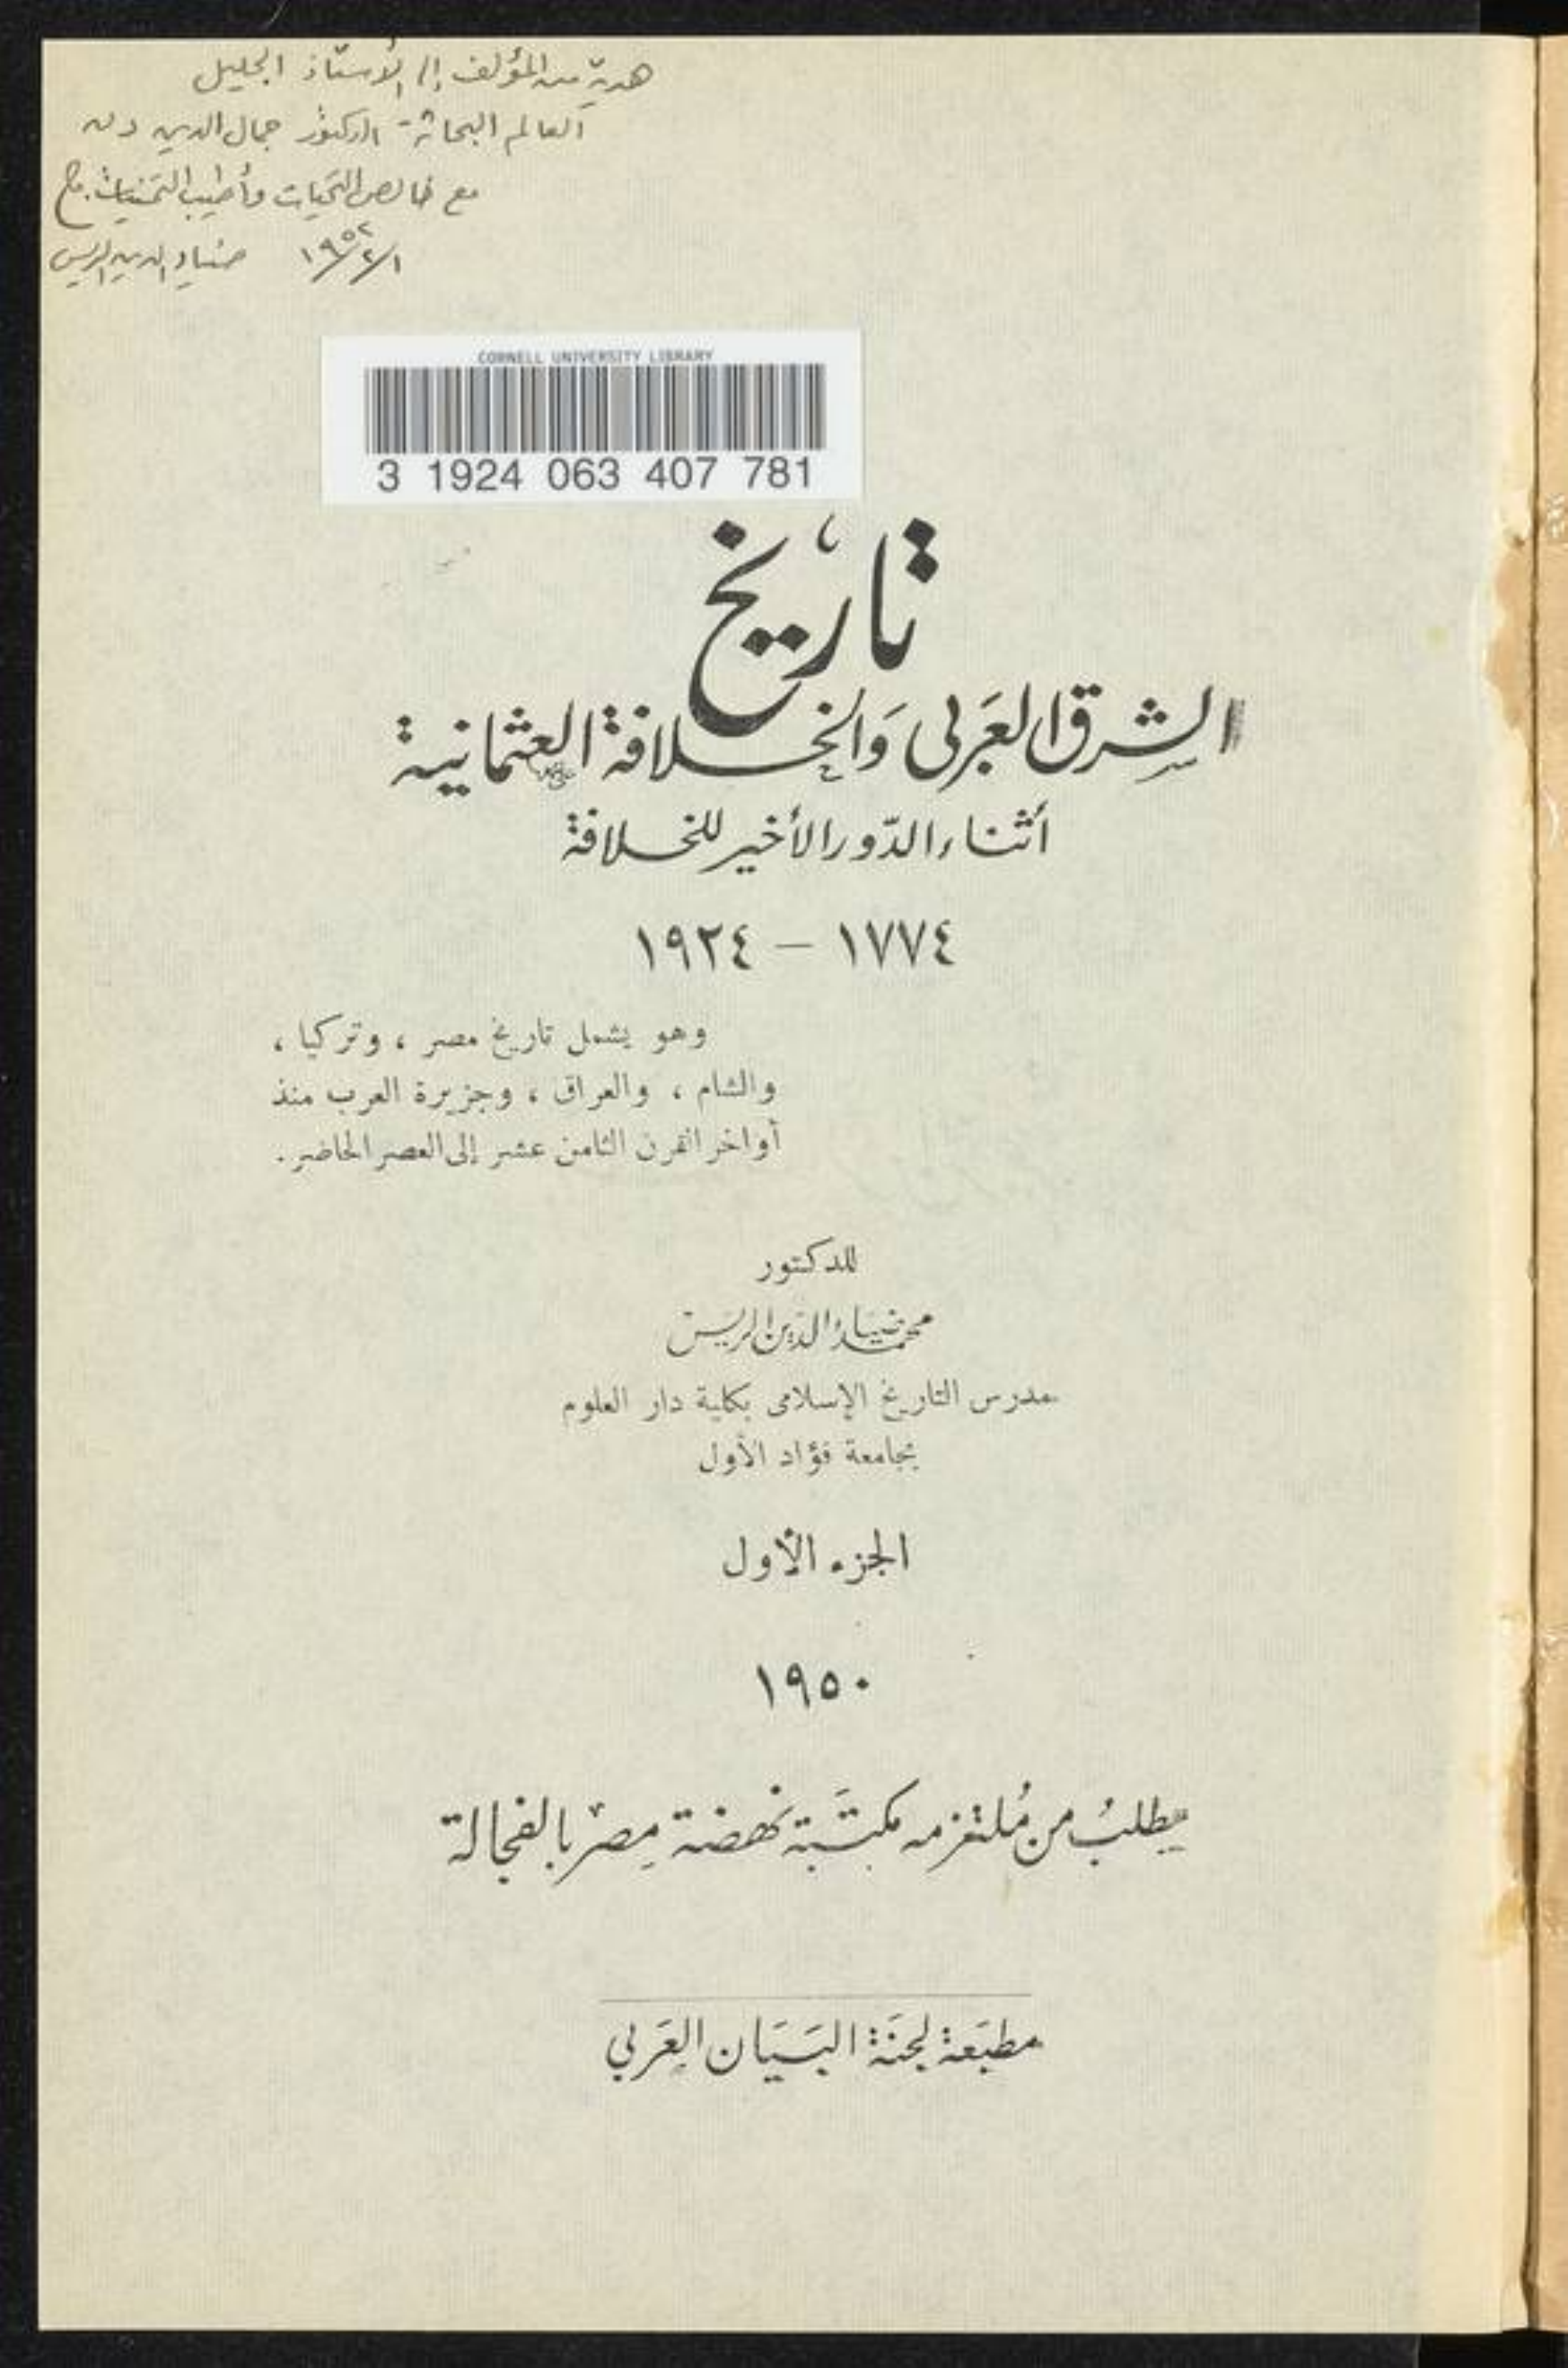 هدية من المؤلف إلى الأستاذ الجليل
العالم البحاثة الدكتور جمال الدين
مع خالص التحيات وأطيب التمنيات
١٩٥٢/٢/١ ضياء الدين الريس
CORNELL UNIVERSITY LIBRARY
3 1924 063 407 781
تاريخ
الشرق العَربى وَالخلافة العثمانية
أثناء الدّور الأخير للخلافة
١٧٧٤ – ١٩٢٤
وهو يشمل تاريخ مصر ، وتركيا ،
والشام ، والعراق ، وجزيرة العرب منذ
أواخر القرن الثامن عشر إلى العصر الحاضر .
للدكتور
محمد ضياء الدين الريس
مدرس التاريخ الإسلامى بكلية دار العلوم
بجامعة فؤاد الأول
الجزء الأول
١٩٥٠
يطلبُ من مُلتزمه مكتَبة نهضة مِصْر بالفجالة
مطبَعة لجنَة البَيَان العَربي